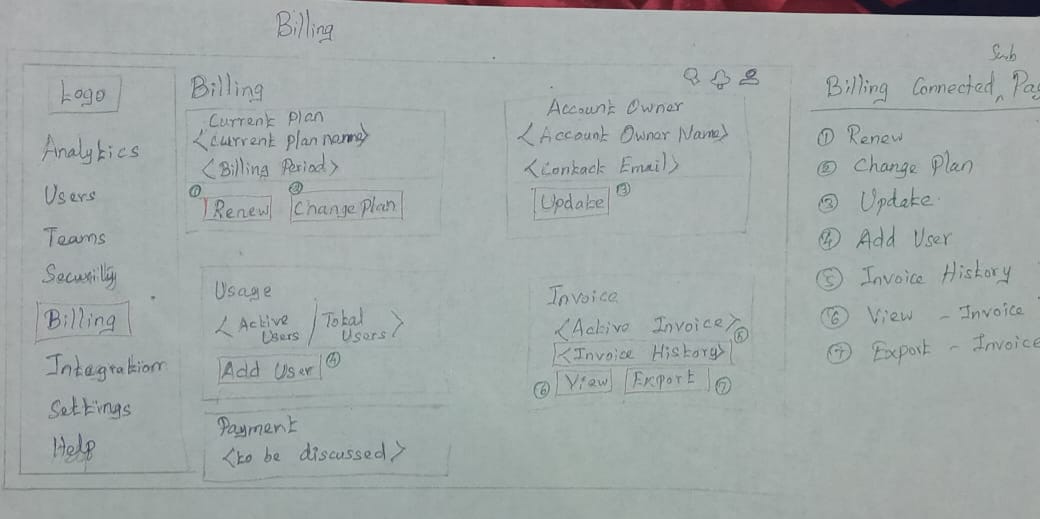 Billing
Logo
Analytics
Users
Teams
Security
Billing
Integration
Settings
Help
Billing
Current Plan
<Current plan name>
<Billing Period>
① ②
Renew Change Plan
Account Owner
<Account Owner Name>
<Contact Email>
Update ③
Usage
<Active Users / Total Users>
Add User ④
Invoice
<Active Invoice>
<Invoice History> ⑤
⑥ View Export ⑦
Payment
<to be discussed>
Sub
Billing Connected ^ Pag
① Renew
② Change Plan
③ Update.
④ Add User
⑤ Invoice History
⑥ View - Invoice
⑦ Export - Invoice